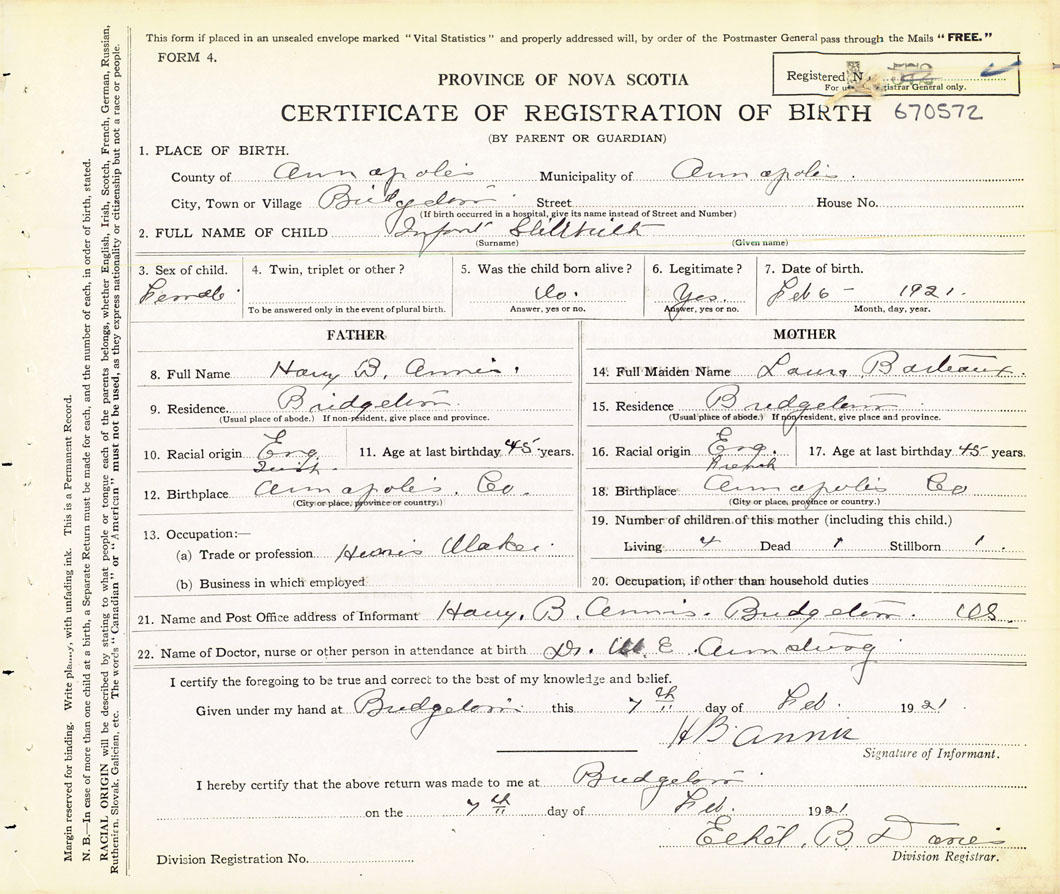 This form if placed in an unsealed envelope marked "Vital Statistics" and properly addressed will, by order of the Postmaster General pass through the Mails "FREE."
FORM 4.
PROVINCE OF NOVA SCOTIA
Registered N
For registrar General only.
CERTIFICATE OF REGISTRATION OF BIRTH 670572
(BY PARENT OR GUARDIAN)
1. PLACE OF BIRTH.
County of Annapolis Municipality of Annapolis.
City, Town or Village Bridgetown Street House No.
(If birth occurred in a hospital, give its name instead of Street and Number)
2. FULL NAME OF CHILD Infant Stillbirth
(Surname) (Given name)
3. Sex of child. 4. Twin, triplet or other? 5. Was the child born alive? 6. Legitimate? 7. Date of birth.
Female No. Yes. Feb 6 - 1921.
To be answered only in the event of plural birth. Answer, yes or no. Answer, yes or no. Month, day, year.
FATHER MOTHER
8. Full Name Harry B. Annis. 14. Full Maiden Name Laura Barteaux.
9. Residence. Bridgetown 15. Residence Bridgetown
(Usual place of abode.) If non-resident, give place and province. (Usual place of abode.) If non-resident, give place and province.
10. Racial origin Eng 11. Age at last birthday 45 years. 16. Racial origin Eng 17. Age at last birthday 45 years.
Irish. French
12. Birthplace Annapolis. Co. 18. Birthplace Annapolis Co
(City or place, province or country.) (City or place, province or country.)
13. Occupation:— 19. Number of children of this mother (including this child.)
(a) Trade or profession Harness Maker. Living 4 Dead 1 Stillborn 1.
(b) Business in which employed 20. Occupation, if other than household duties
21. Name and Post Office address of Informant Harry. B. Annis. Bridgetown. NS.
22. Name of Doctor, nurse or other person in attendance at birth Dr. M. E. Armstrong
I certify the foregoing to be true and correct to the best of my knowledge and belief.
Given under my hand at Bridgetown this 7th day of Feb. 1921.
H B Annis
Signature of Informant.
I hereby certify that the above return was made to me at Bridgetown
on the 7th day of Feb. 1921
Ethel. B. Davies
Division Registrar.
Division Registration No.
Margin reserved for binding. Write with unfading ink. This is a Permanent Record.
N. B.—In case of more than one child at a birth, a Separate Return must be made for each, and the number of each, in order of birth, stated.
RACIAL ORIGIN will be described by stating to what people or tongue each of the parents belongs, whether English, Irish, Scotch, French, German, Russian,
Ruthenirn, Slovak, Galician, etc. The words "Canadian" or "American" must not be used, as they express nationality or citizenship but not a race or people.